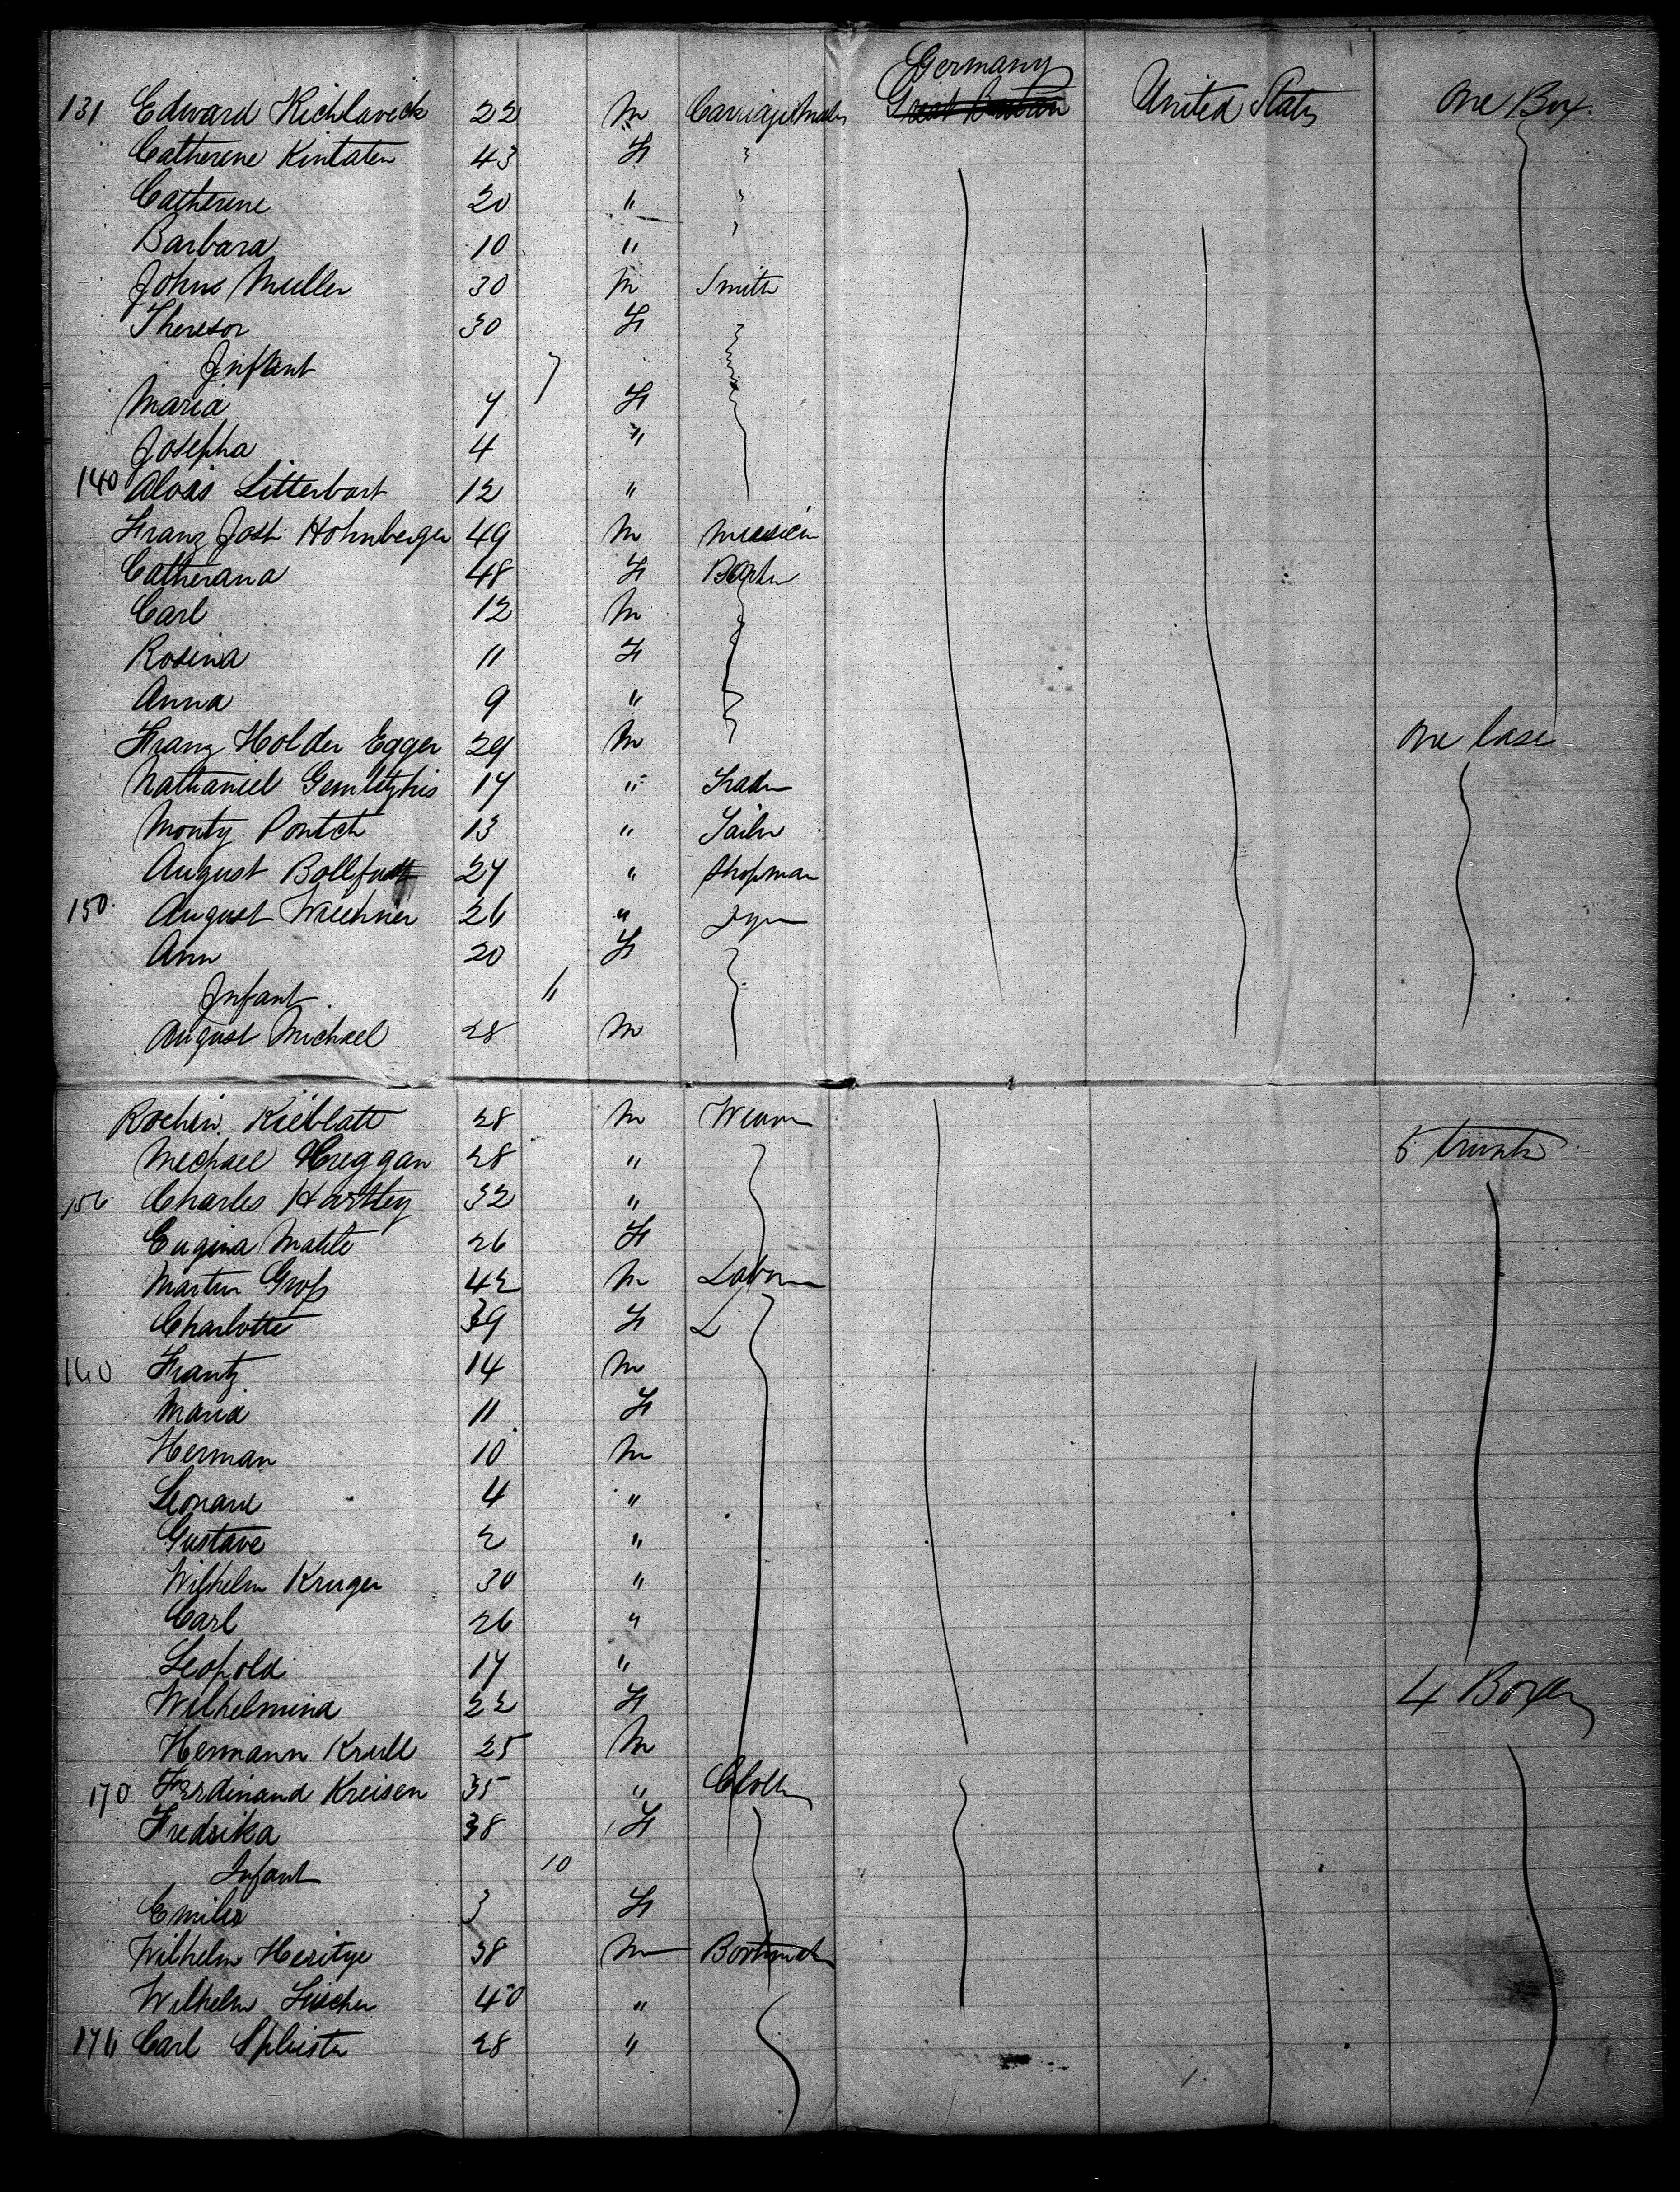 Germany
131 Edward Kichlaveck 22 M Carriage Maker Great Britain United States One Box
Catherine Kintaten 43 F "
Catherine 20 " "
Barbara 10 " "
Johns Muller 30 M Smith
Theresor 30 F
Infant 7
Maria 7 F
Josepha 4 "
140 Alois Litterbart 12 "
Franz Jost Hohnberger 49 M
Catherana 48 F
Carl 12 M
Rosina 11 F
Anna 9 "
Franz Holder Egger 29 M One Case
Nathaniel 17 "
Monty Pontch 13 " Tailor
August 27 " Shopman
150 August Wuehner 26 "
Ann 20 F
Infant 11
August Michael 28 M
Rochin Kieblatt 28 M Weaver
Michael Kreggan 28 " 5 trunks
156 Charles Hartley 32 "
Eugina Matile 26 F
Martin Groß 42 M Labourer
Charlotte 39 F L
160 Frantz 14 M
Maria 11 F
Herman 10 M
Leonard 4 "
Gustave 2 "
Wilhelm Kruger 30 "
Carl 26 "
Leopold 17 "
Wilhelmina 22 F 4 Boxes
Hermann Krull 25 M
170 Ferdinand Kreisen 35 "
Fredrika 38 F
Infant 10
Emilie 3 F
Wilhelm Heritge 38 M Bootmaker
Wilhelm Fischer 40 "
176 Carl Spleister 28 "